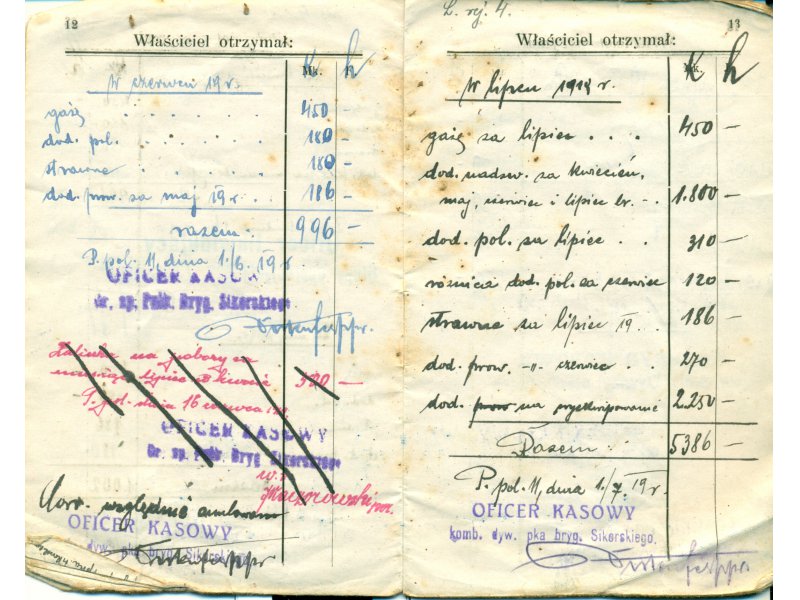 12
Właściciel otrzymał:
Mk.
K h
W czerwcu 19 r.
gażę . . . . . 450 —
dod. pol. . . . . 180 —
strawne . . . . 180 —
dod. prow. za maj 19 r. . . 186 —
razem: 996 —
P. pol. 11, dnia 1./6. 19 r.
OFICER KASOWY
Gr. sp. Pułk. Bryg. Sikorskiego
Zaliczka na pobory za
lipiec w kwocie 520 —
P. pol. dnia 16 czerwca
OFICER KASOWY
Gr. sp. Pułk. Bryg. Sikorskiego
w. z.
por.
OFICER KASOWY
dyw. pka bryg. Sikorskiego
L. rej. 4.
13
Właściciel otrzymał:
K h
W lipcu 1919 r.
gażę za lipiec . . . 450 —
dod. nadzw. za kwiecień,
maj, czerwiec i lipiec br. - . 1.800 —
dod. pol. za lipiec . . 310 —
różnica dod. pol. za czerwiec 120 —
strawne za lipiec 19. . 186 —
dod. prow. -„- czerwiec . 270 —
dod. prow na wyekwipowanie 2.250 —
Razem: 5386 —
P. pol. 11, dnia 1./7. 19 r.
OFICER KASOWY
komb. dyw. pka bryg. Sikorskiego,